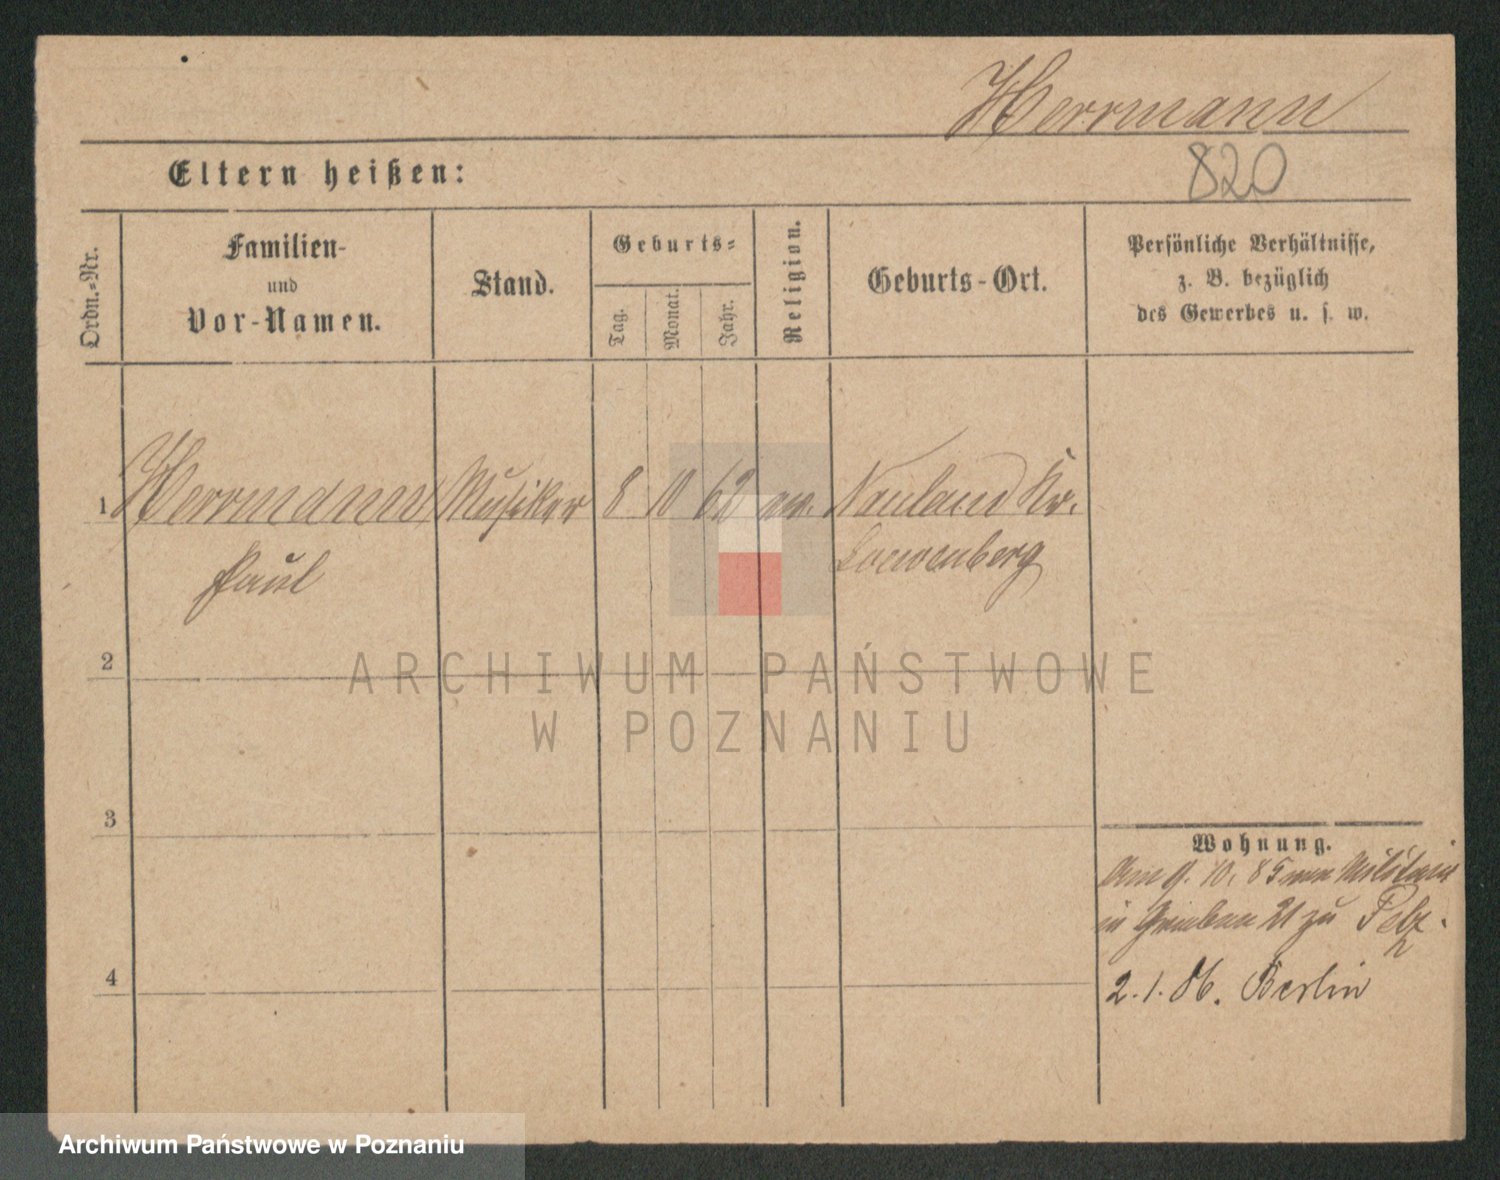 Herrmann
820
Eltern heißen:
Ordn.-Nr.
Familien-
und
Vor-Namen.
Stand.
Geburts-
Tag.
Monat.
Jahr.
Religion.
Geburts-Ort.
Persönliche Verhältnisse,
z. B. bezüglich
des Gewerbes u. s. w.
1 Herrmann Musiker 8 10 62 ev. Neuland Kr.
Paul Loewenberg
2
3
4
Wohnung.
9. 10. 85 vom Militair
in Graben 21 zu
2. 1. 86. Berlin
ARCHIWUM PAŃSTWOWE
W POZNANIU
Archiwum Państwowe w Poznaniu